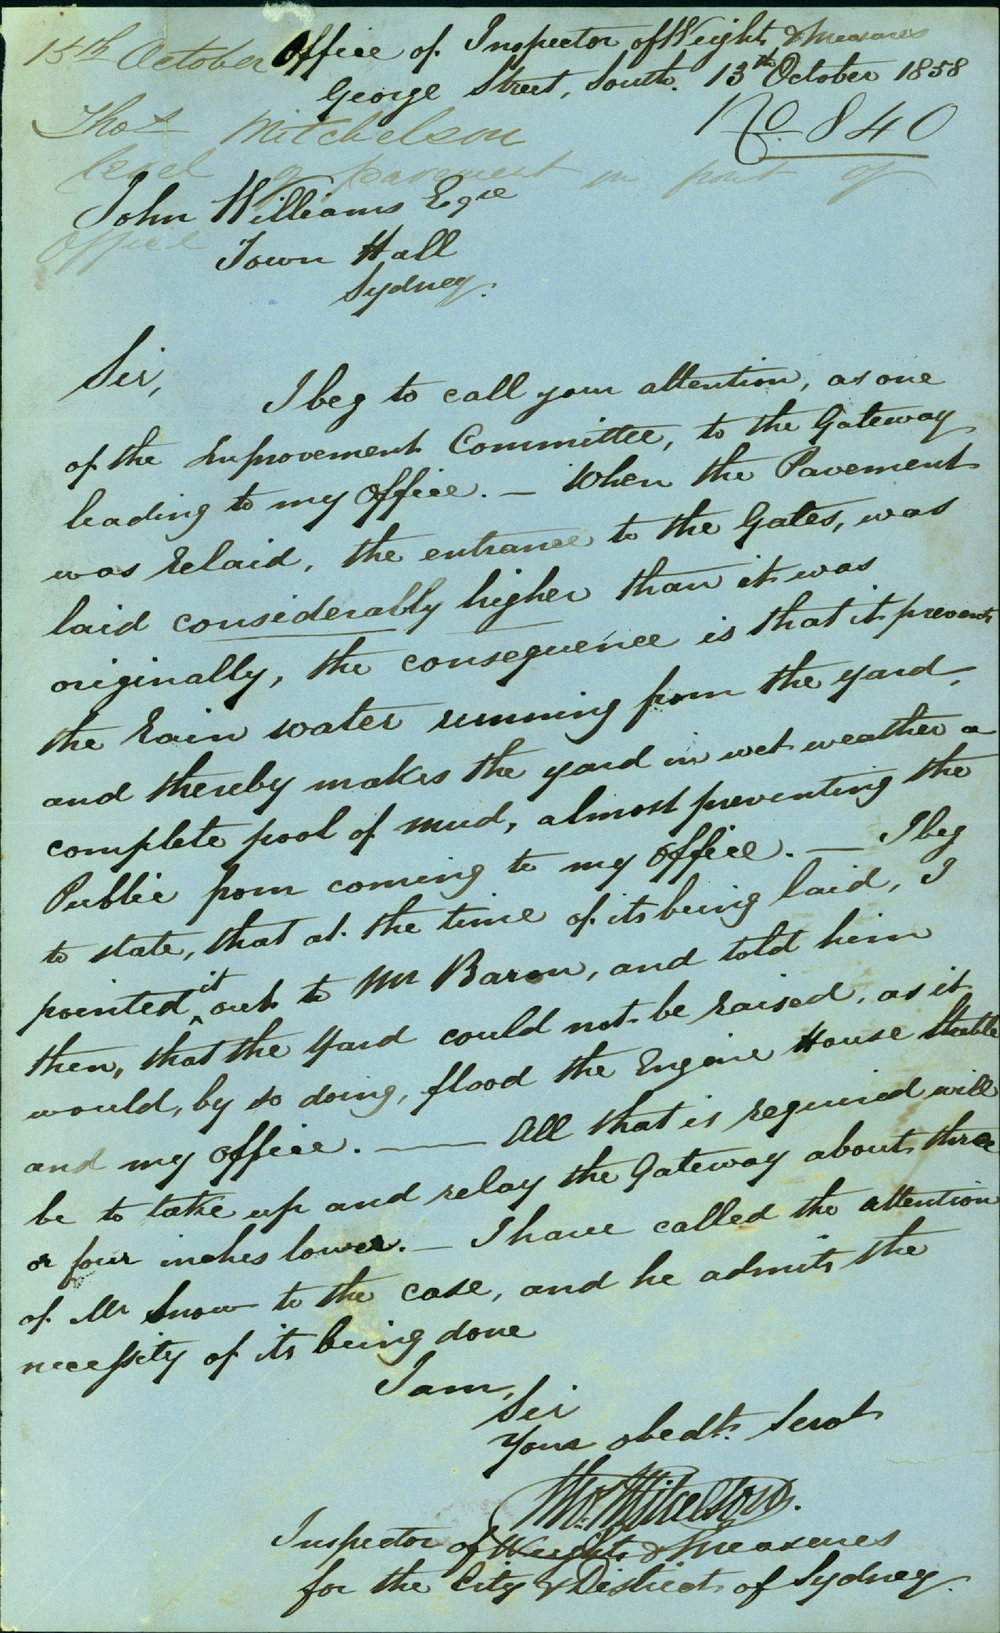 15th October
Office of Inspector of Weights & Measures
George Street, South. 13th October 1858
No. 840
Thos Mitchelson
level of pavement in front of
Office
John Williams Esqre
Town Hall
Sydney.
Sir,
I beg to call your attention, as one
of the Improvement Committee, to the Gateway
leading to my Office. — When the Pavement
was relaid, the entrance to the Gates, was
laid considerably higher than it was
originally, the consequence is that it prevents
the rain water running from the yard,
and thereby makes the yard in wet weather a
complete pool of mud, almost preventing the
Public from coming to my Office. — I beg
to state, that at the time of its being laid, I
pointed it out to Mr Baron, and told him
then, that the Yard could not be raised, as it
would, by so doing, flood the Engine House Stable
and my office. — All that is required will
be to take up and relay the Gateway about three
or four inches lower. — I have called the attention
of Mr Snow to the case, and he admits the
necessity of its being done
I am,
Sir
Your obedt. Servt
Thos. Mitchelson.
Inspector of Weights & Measures
for the City & District of Sydney.